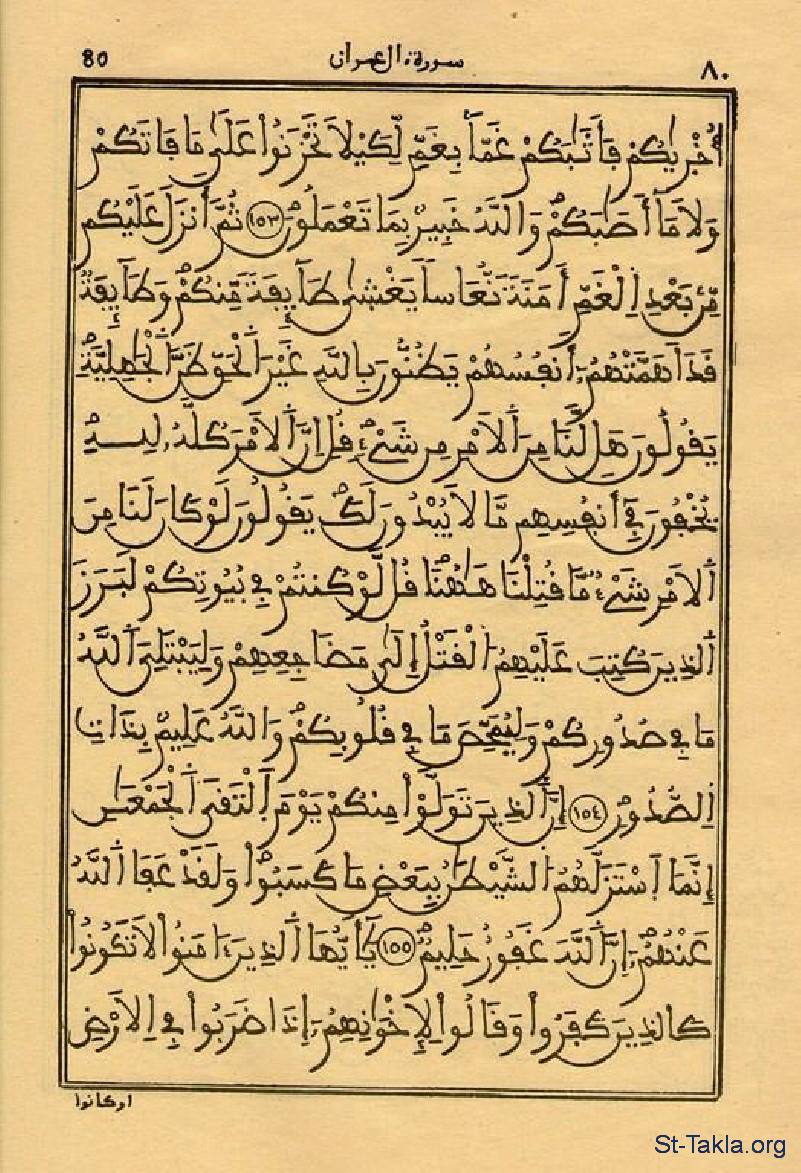 80 سورة ال عمران ٨٠
أُخْرِيٰكُمْ فَأَثَٰبَكُمْ غَمّاً بِغَمٍّ لِّكَيْلَا تَحْزَنُوا۟ عَلَىٰ مَا فَاتَكُمْ
وَلَا مَآ أَصَٰبَكُمْ وَاللَّهُ خَبِيرٌ بِمَا تَعْمَلُونَ (١٥٣) ثُمَّ أَنزَلَ عَلَيْكُم
مِّنۢ بَعْدِ اِلْغَمِّ أَمَنَةً نُّعَاساً يَغْشَىٰ طَآئِفَةً مِّنكُمْ وَطَآئِفَةٌ
قَدَ اَهَمَّتْهُمُۥٓ أَنفُسُهُمْ يَظُنُّونَ بِاللَّهِ غَيْرَ اَلْحَقِّ ظَنَّ اَلْجَٰهِلِيَّةِ
يَقُولُونَ هَل لَّنَا مِنَ اَلَامْرِ مِن شَيْءٍ قُلِ اِنَّ اَلَامْرَ كُلَّهُۥ لِلهِ
يُخْفُونَ فِىٓ أَنفُسِهِم مَّا لَا يُبْدُونَ لَكَ يَقُولُونَ لَوْ كَانَ لَنَا مِنَ
اَلَامْرِ شَيْءٌ مَّا قُتِلْنَا هَٰهُنَا قُل لَّوْ كُنتُمْ فِى بُيُوتِكُمْ لَبَرَزَ
اَلذِينَ كُتِبَ عَلَيْهِمُ اُلْقَتْلُ إِلَىٰ مَضَاجِعِهِمْ وَلِيَبْتَلِىَ اَللَّهُ
مَا فِى صُدُورِكُمْ وَلِيُمَحِّصَ مَا فِى قُلُوبِكُمْ وَاللَّهُ عَلِيمٌ بِذَاتِ
اِلصُّدُورِ (١٥٤) إِنَّ اَلذِينَ تَوَلَّوْا۟ مِنكُمْ يَوْمَ اَلْتَقَى اَلْجَمْعَٰنِ
إِنَّمَا اَسْتَزَلَّهُمُ اُلشَّيْطَٰنُ بِبَعْضِ مَا كَسَبُوا۟ وَلَقَدْ عَفَا اَللَّهُ
عَنْهُمُۥٓ إِنَّ اَللَّهَ غَفُورٌ حَلِيمٌ (١٥٥) يَٰٓأَيُّهَا اَلذِينَ ءَامَنُوا۟ لَا تَكُونُوا۟
كَالذِينَ كَفَرُوا۟ وَقَالُوا۟ لِإِخْوَٰنِهِمُۥٓ إِذَا ضَرَبُوا۟ فِى اِلَارْضِ
اوكانوا
St-Takla.org